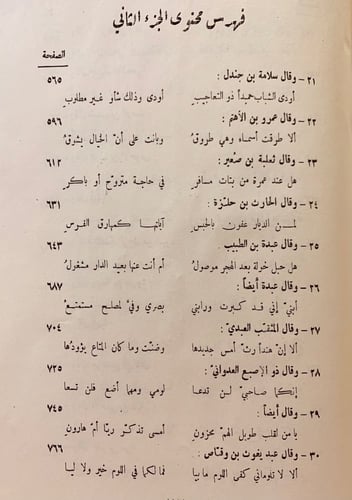 فهرس محتوى الجزء الثاني
الصفحة
٢١ - وقال سلامة بن جندل : ٥٦٥
أودى الشباب حميداً ذو التعاجيب أودى وذلك شأو غير مطلوب
٢٢ - وقال عمرو بن الأهتم : ٥٩٦
ألا طرقت أسماء وهي طروقُ وبانت على أنّ الخيال يشوقُ
٢٣ - وقال ثعلبة بن صُعير : ٦١٢
هل عند عمرة من بتات مسافرٍ في حاجة متروّحٍ أو باكرِ
٢٤ - وقال الحارث بن حلزة : ٦٣١
لمن الديار عفون بالحبسِ آياتها كمهارق الفرس
٢٥ - وقال عبدة بن الطبيب ٦٤٣
هل حبل خولة بعد الهجر موصولُ أم أنت عنها بعيد الدار مشغولُ
٢٦ - وقال عبدة أيضاً : ٦٨٧
أبنيّ إني قد كبرت ورابني بصري وفيّ لمصلح مستمتعُ
٢٧ - وقال المثقب العبديّ : ٧٠٤
ألا إنّ هنداً رثّ أمس جديدها وضنّت وما كان المتاع يؤودُها
٢٨ - وقال ذو الإصبع العدوانيّ : ٧٢٥
إنكما صاحبيّ لن تدعا لومي ومهما أضع فلن تسعا
٢٩ - وقال أيضاً : ٧٤٥
يا من لقلب طويل الهمّ محزونِ أمسى تذكّر ريّا أمّ هارونِ
٣٠ - وقال عبد يغوث بن وقّاص : ٧٦٦
ألا لا تلوماني كفى اللوم ما بيا فما لكما في اللوم خير ولا ليا